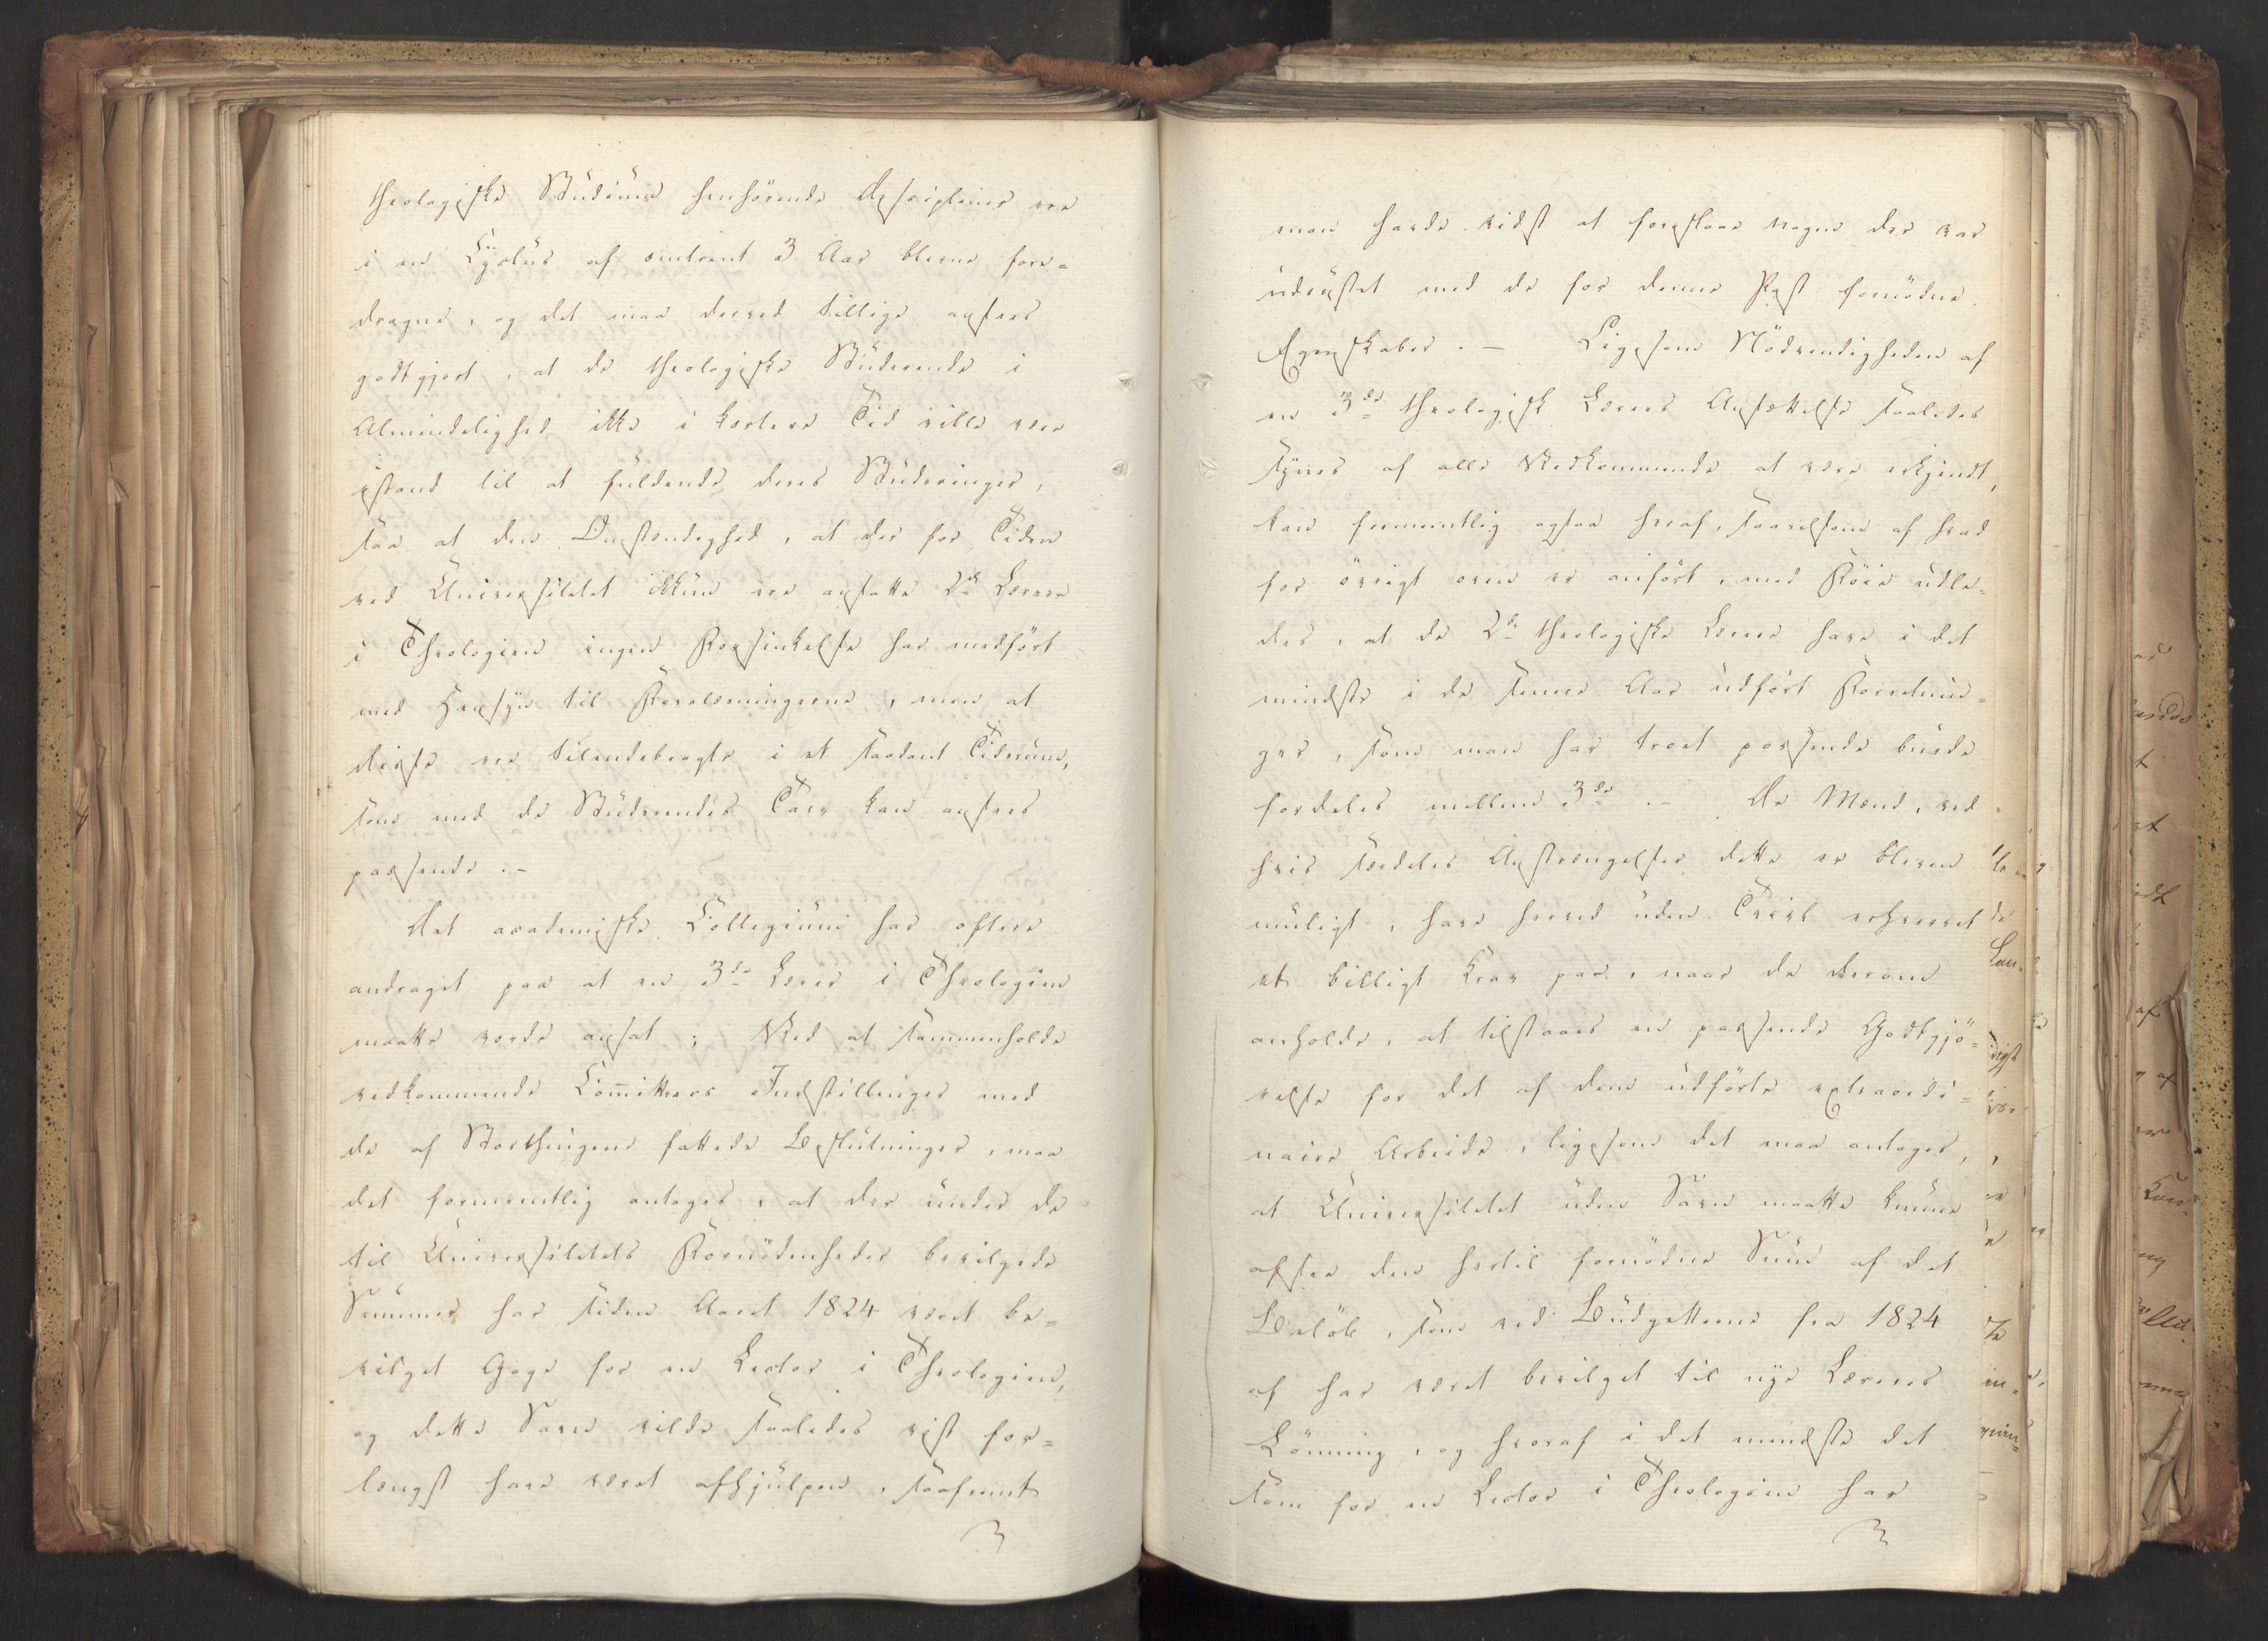 theologiske Studium henhörende Discipliner ere
i en Cyclus af omtrent 3 Aar blevne fore=
dragne, og det maa derved tillige ansees
godtgjort, at de theologiske Studerende i
Almindelighed ikke i kortere Tid ville være
istand til at fuldende deres Studeringer,
saa at den Omstændighed, at der for Tiden
ved Universitetet ikkun ere ansatte 2de Lærere
i Theologien ingen Forsinkelse har medfört
med Hensyn til Forelæsningerne, men at
disse ere tilendebragte i et saadant Tidsrum,
som med de Studerendes Tarv kan ansees
passende. -
Det academiske Collegium har oftere
andraget paa at en 3die Lærer i Theologien
maatte vorde ansat; Ved at sammenholde
vedkommende Committeers Indstillinger med
de af Storthingene fattede Beslutninger, maa
det formeentlig antages, at der under de
til Universitetets Fornödenheder bevilgede
Summer har siden Aaret 1824 været be=
vilget Gage for en Lector i Theologien,
og dette Savn vilde saaledes vist for=
længst have været afhjulpen, saafremt
man havde vidst at foreslaae nogen der var
udrustet med de for denne Post fornödne
Egenskaber. - Ligesom Nödvendigheden af
en 3die theologisk Lærers Ansættelse saaledes
synes af alle Vedkommende at være erkjendt,
kan formeentlig ogsaa heraf, saavelsom af hvad
for övrigt oven er anfört, med Föie udle=
des, at de 2de theologiske Lærere have i det
mindste i de senere Aar udfört Forretnin=
ger, som man har troet passende burde
fordeles mellem 3de. - De Mænd, ved
hvis særdeles Anstrængelser dette er bleven
muligt, have herved uden Tvivl erhvervet
et billigt Krav paa, naar de derom
anholde, at tilstaaes en passende Godtgjö=
relse for det af dem udförte extraordi=
naire Arbeide, ligesom det maa antages,
at Universitetet uden Savn maatte kunne
afsee den hertil fornödne Sum af det
Belöb, som ved Budgetterne fra 1824
af har været bevilget til nye Læreres
Lönning, og hvoraf i det mindste det
som for en Lector i Theologien har